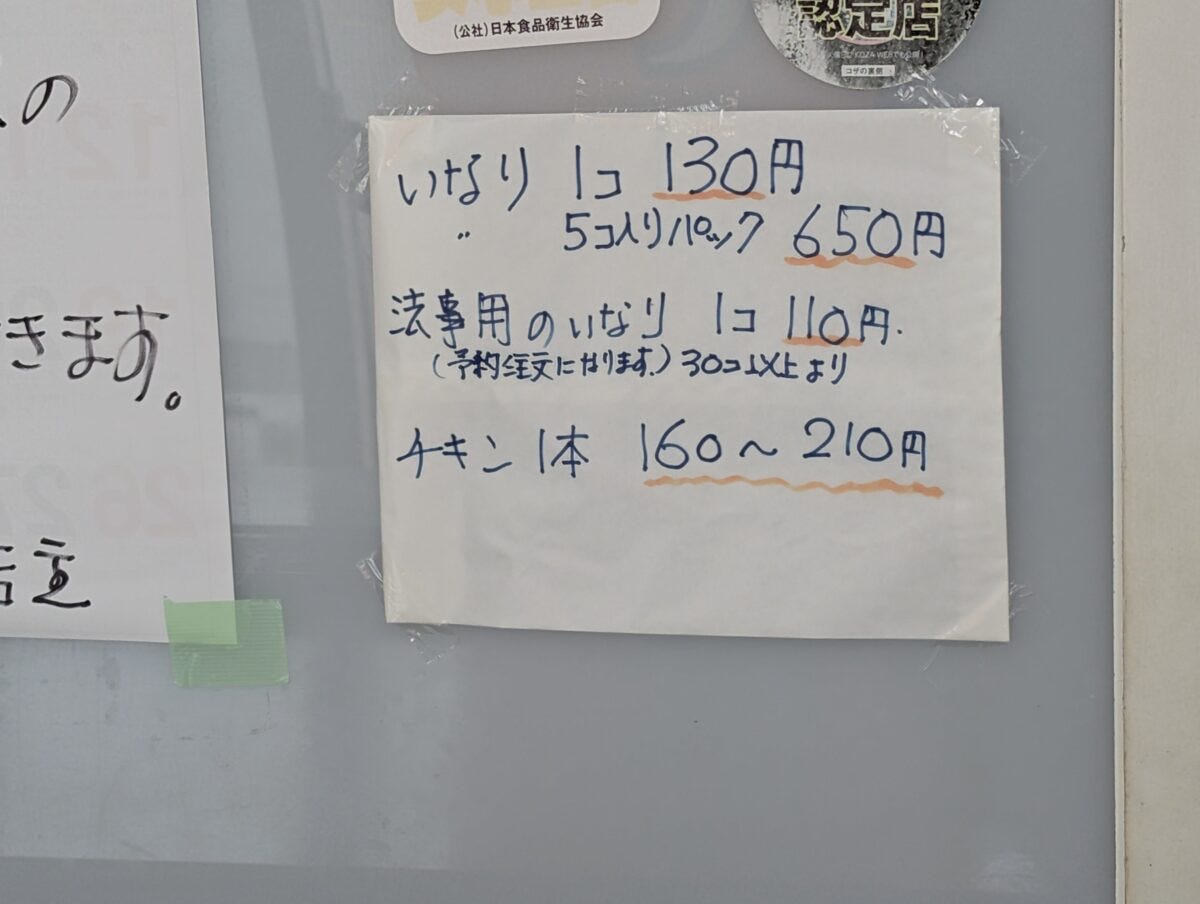 (公社)日本食品衛生協会
認定店
コザの裏側
の
きます。
いなり 1コ 130円
〃 5コ入りパック 650円
法事用のいなり 1コ 110円.
(予約注文になります。) 30コ以上より
チキン 1本 160〜210円